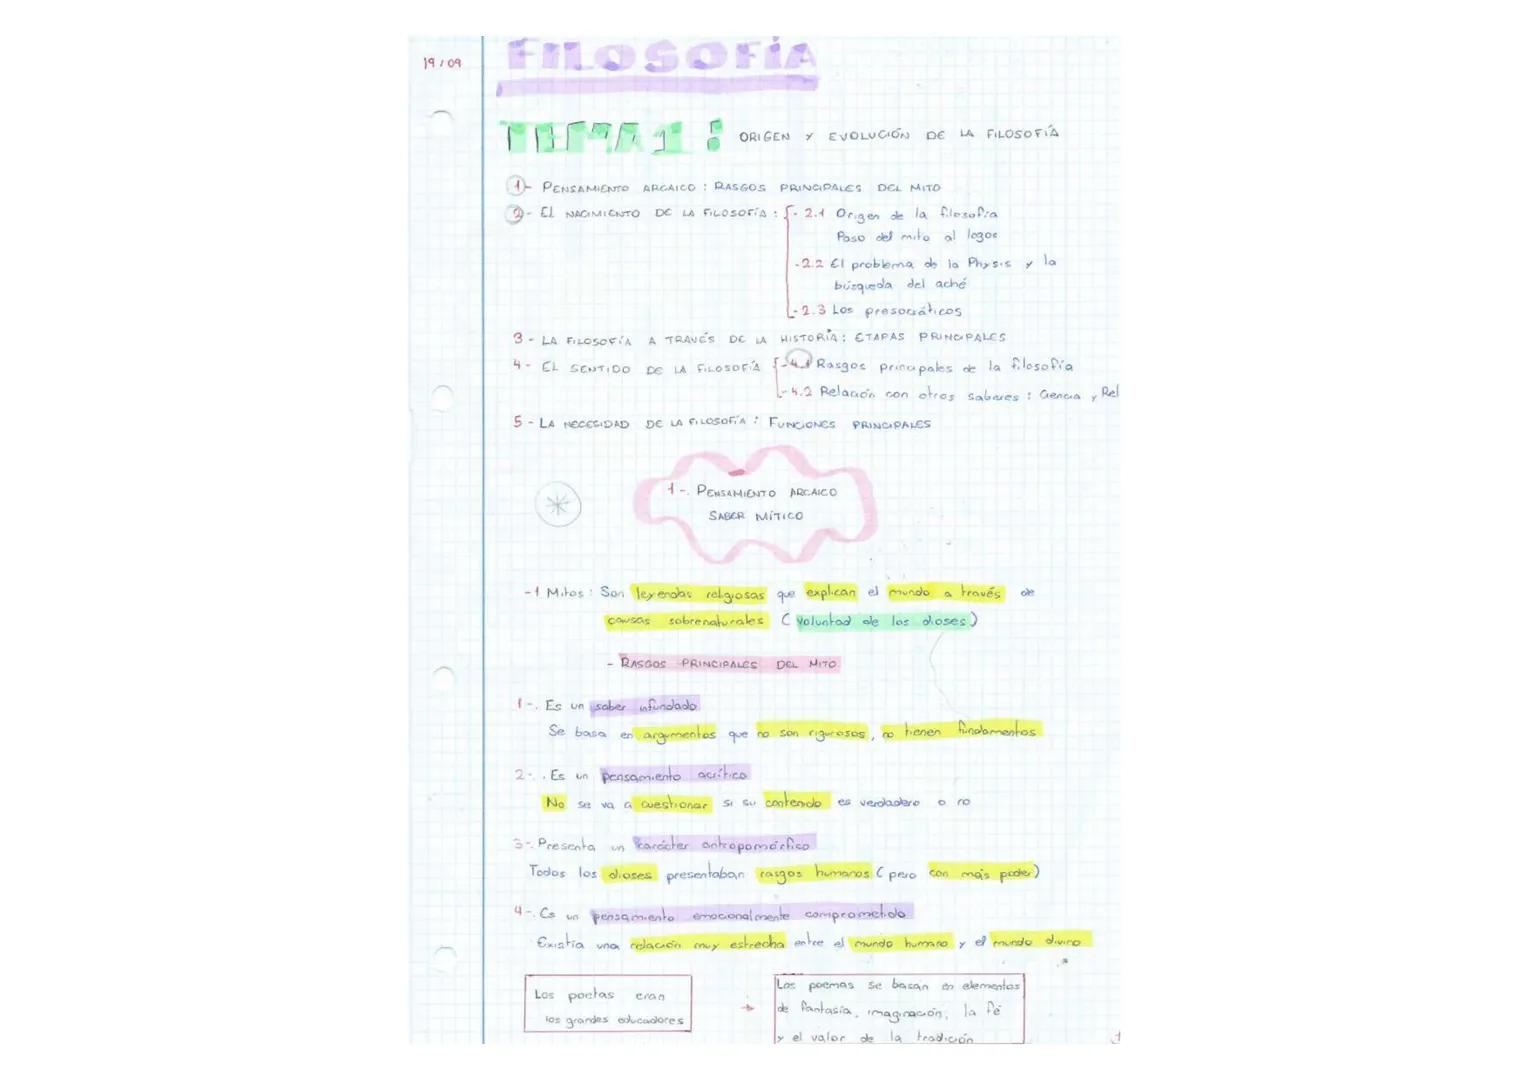 19/09
FILOSOFÍA
TEMA 1: ORIGEN Y EVOLUCIÓN DE LA FILOSOFÍA
1- PENSAMIENTO ARCAICO: RASGOS PRINCIPALES DEL MITO
2- EL NACIMIENTO DE LA FILOSOFÍA: - 2.1 Origen de la filosofía
Paso del mito al logos
-2.2 El problema de la Physis y la
búsqueda del aché
-2.3 Los presocráticos
3- LA FILOSOFÍA A TRAVÉS DE LA HISTORÍA: ETAPAS PRINCIPALES
4- EL SENTIDO DE LA FILOSOFÍA -4.1 Rasgos principales de la filosofía
-4.2 Relación con otros saberes: Ciencia y Rel
5- LA NECESIDAD DE LA FILOSOFÍA: FUNCIONES PRINCIPALES
1-. PENSAMIENTO ARCAICO
SABER MÍTICO
-1 Mitos: Son leyendas religiosas que explican el mundo a través de
causas sobrenaturales (voluntad de los dioses)
- RASGOS PRINCIPALES DEL MITO
1-. Es un saber infundado
Se basa en argumentos que no son rigurosos, no tienen fundamentos
2-. Es un pensamiento acrítico
No se va a cuestionar si su contenido es verdadero o no
3-. Presenta un carácter antropomórfico
Todos los dioses presentaban rasgos humanos (pero con más poder)
4-. Es un pensamiento emocionalmente comprometido
Existía una relación muy estrecha entre el mundo humano y el mundo divino
Los poetas eran
los grandes educadores
Los poemas se basan en elementos
de fantasía, imaginación, la fé
y el valor de la tradición